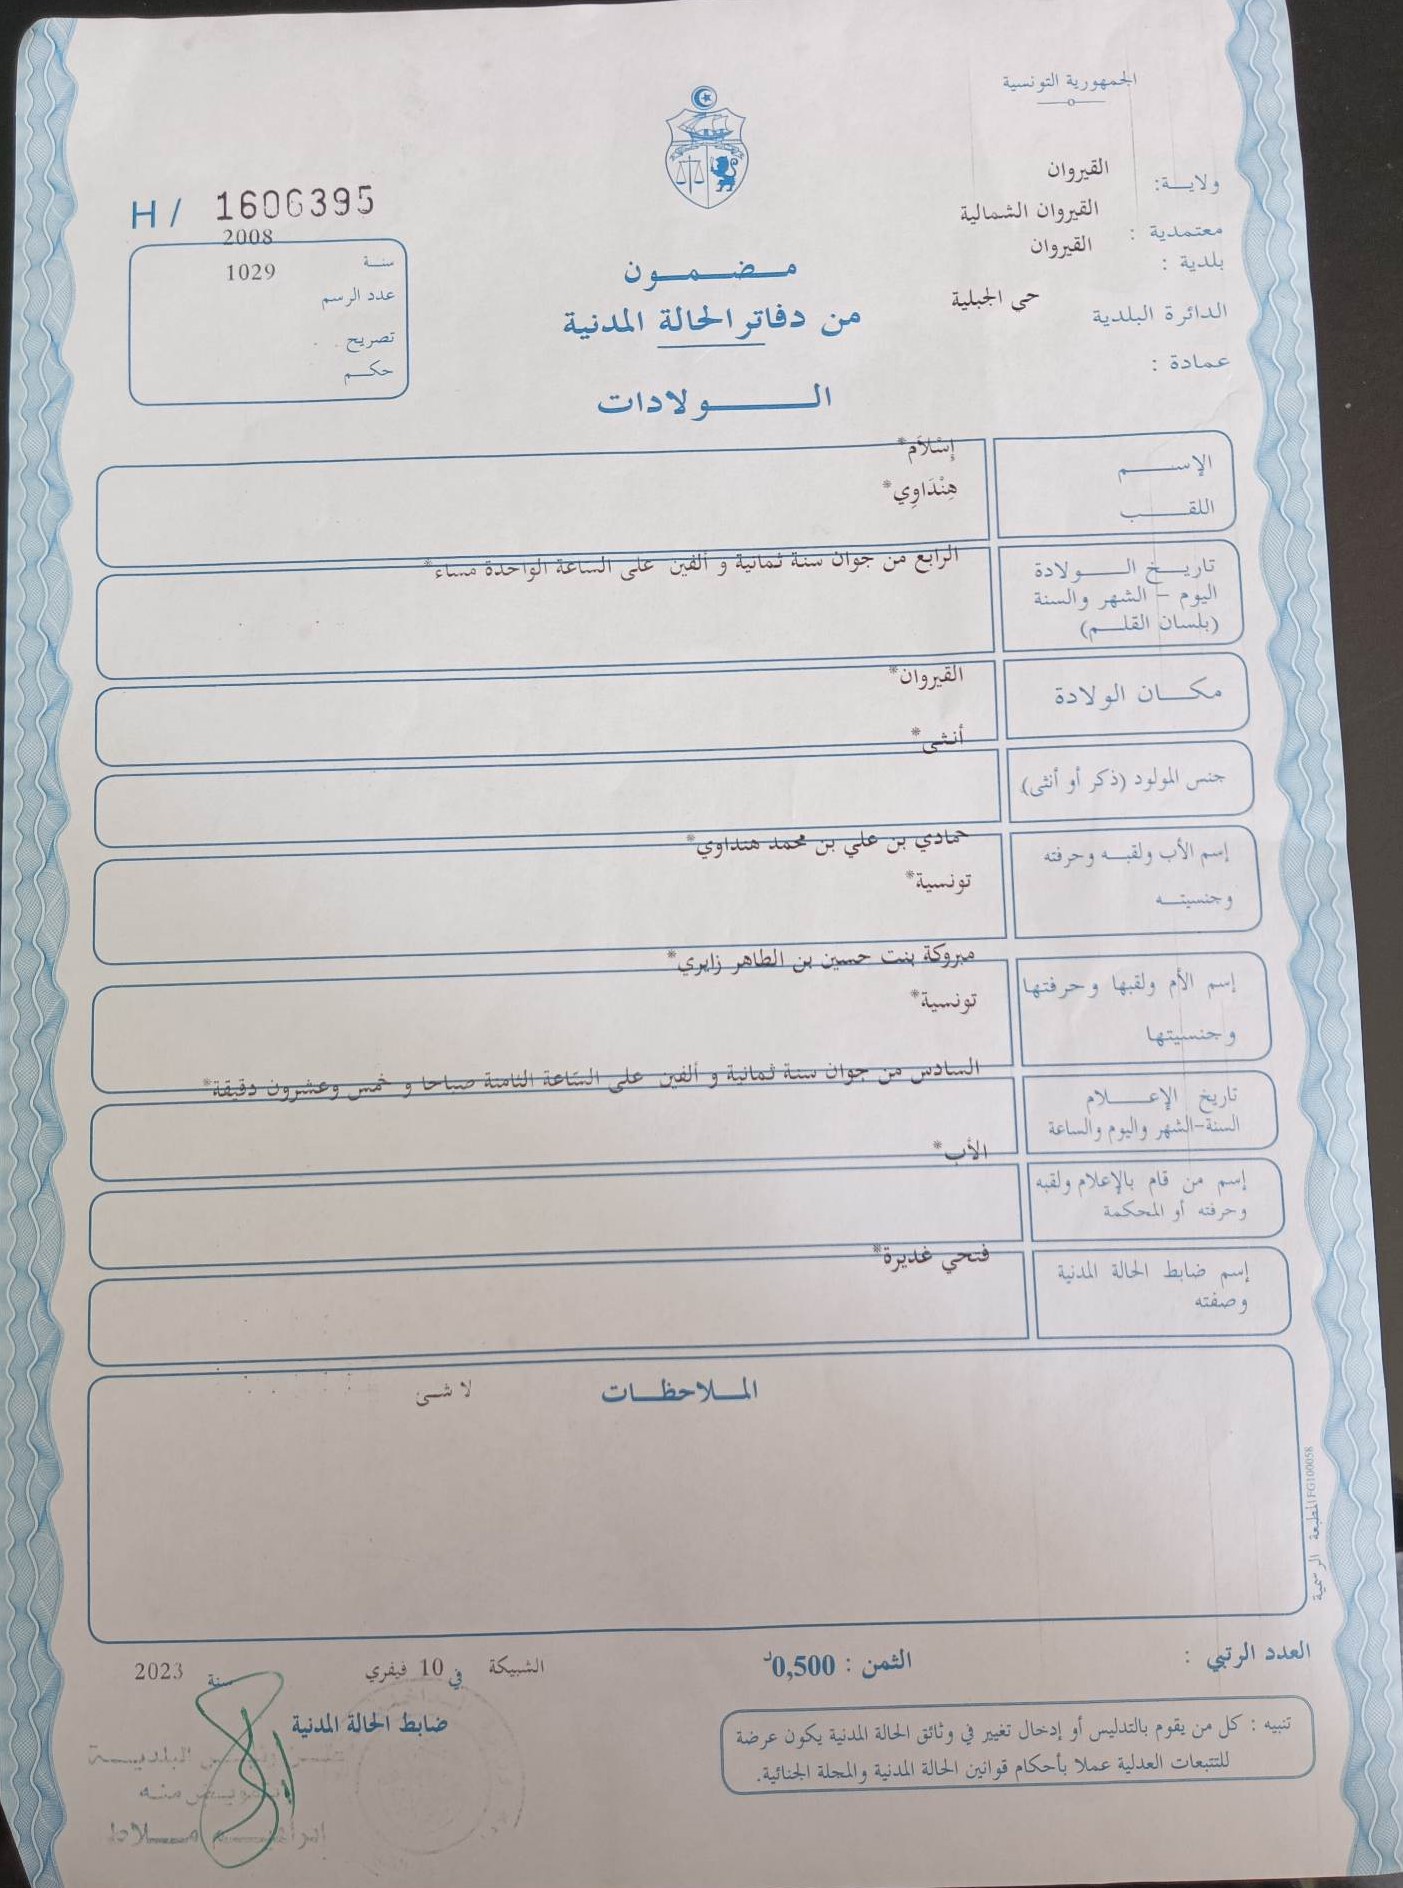 الجمهورية التونسية
ولاية: القيروان
معتمدية : القيروان الشمالية
بلدية : القيروان
الدائرة البلدية حي الجبلية
عمادة :
H / 1606395
سنة 2008
عدد الرسم 1029
تصريح
حكم
مضمون
من دفاتر الحالة المدنية
الولادات
الإسم إِسْلاَم*
اللقب هِنْدَاوِي*
تاريخ الولادة
اليوم - الشهر والسنة
(بلسان القلم)
الرابع من جوان سنة ثمانية و ألفين على الساعة الواحدة مساء*
مكان الولادة القيروان*
جنس المولود (ذكر أو أنثى) أنثى*
إسم الأب ولقبه وحرفته
وجنسيته
حمادي بن علي بن محمد هنداوي*
تونسية*
إسم الأم ولقبها وحرفتها
وجنسيتها
مبروكة بنت حسين بن الطاهر زايري*
تونسية*
تاريخ الإعلام
السنة-الشهر واليوم والساعة
السادس من جوان سنة ثمانية و ألفين على السّاعة الثامنة صباحا و خمس وعشرون دقيقة*
إسم من قام بالإعلام ولقبه
وحرفته أو المحكمة
الأب*
إسم ضابط الحالة المدنية
وصفته
فتحي غديرة*
الملاحظات
لا شئ
المطبعة الرسمية FG100058
العدد الرتبي :
الثمن : 0,500د
الشبيكة في 10 فيفري سنة 2023
ضابط الحالة المدنية
تنبيه : كل من يقوم بالتدليس أو إدخال تغيير في وثائق الحالة المدنية يكون عرضة
للتتبعات العدلية عملا بأحكام قوانين الحالة المدنية والمجلة الجنائية.